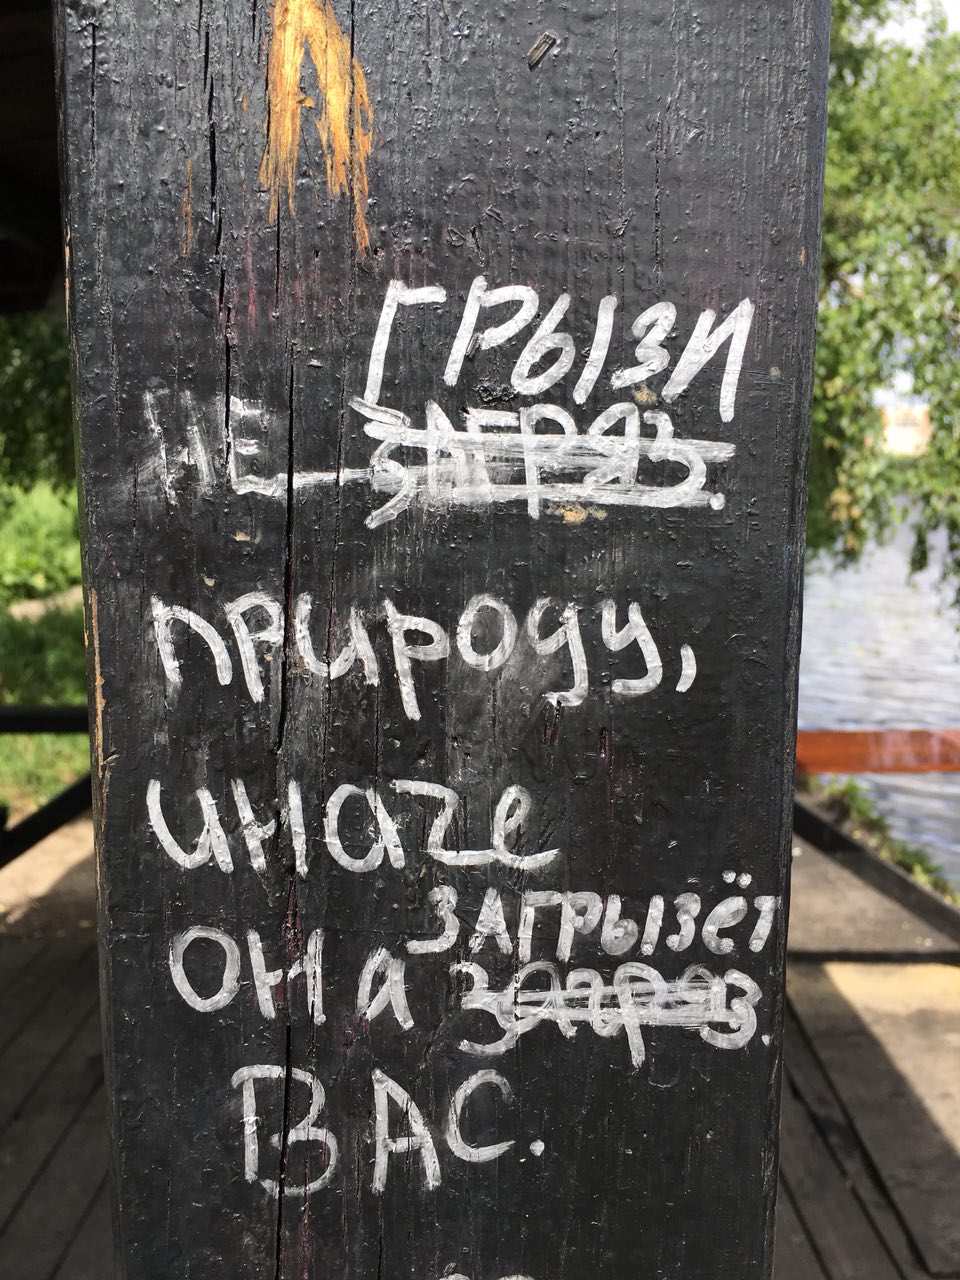 ГРЫЗИ
НЕ ЗАГРЯЗ.
природу,
иначе
ЗАГРЫЗЁТ
она загряз.
ВАС.